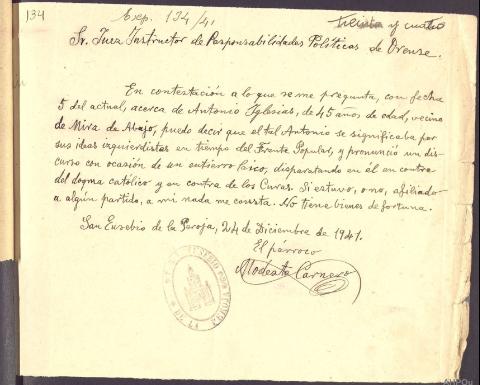 134
Exp. 134/41
treinta y cuatro
Sr. Juez Instructor de Responsabilidades Políticas de Orense.
En contestación a lo que se me pregunta, con fecha
5 del actual, acerca de Antonio Iglesias, de 45 años de edad, vecino
de Mira de Abajo, puedo decir que el tal Antonio se significaba por
sus ideas izquierdistas en tiempo del Frente Popular, y pronunció un dis-
curso con ocasión de un entierro laico, disparatando en él en contra
del dogma católico y en contra de los Curas. Si estuvo, o no, afiliado
a algún partido, a mi nada me consta. No tiene bienes de fortuna.
San Eusebio de la Peroja, 24 de Diciembre de 1941.
El párroco
Modesto Carnero